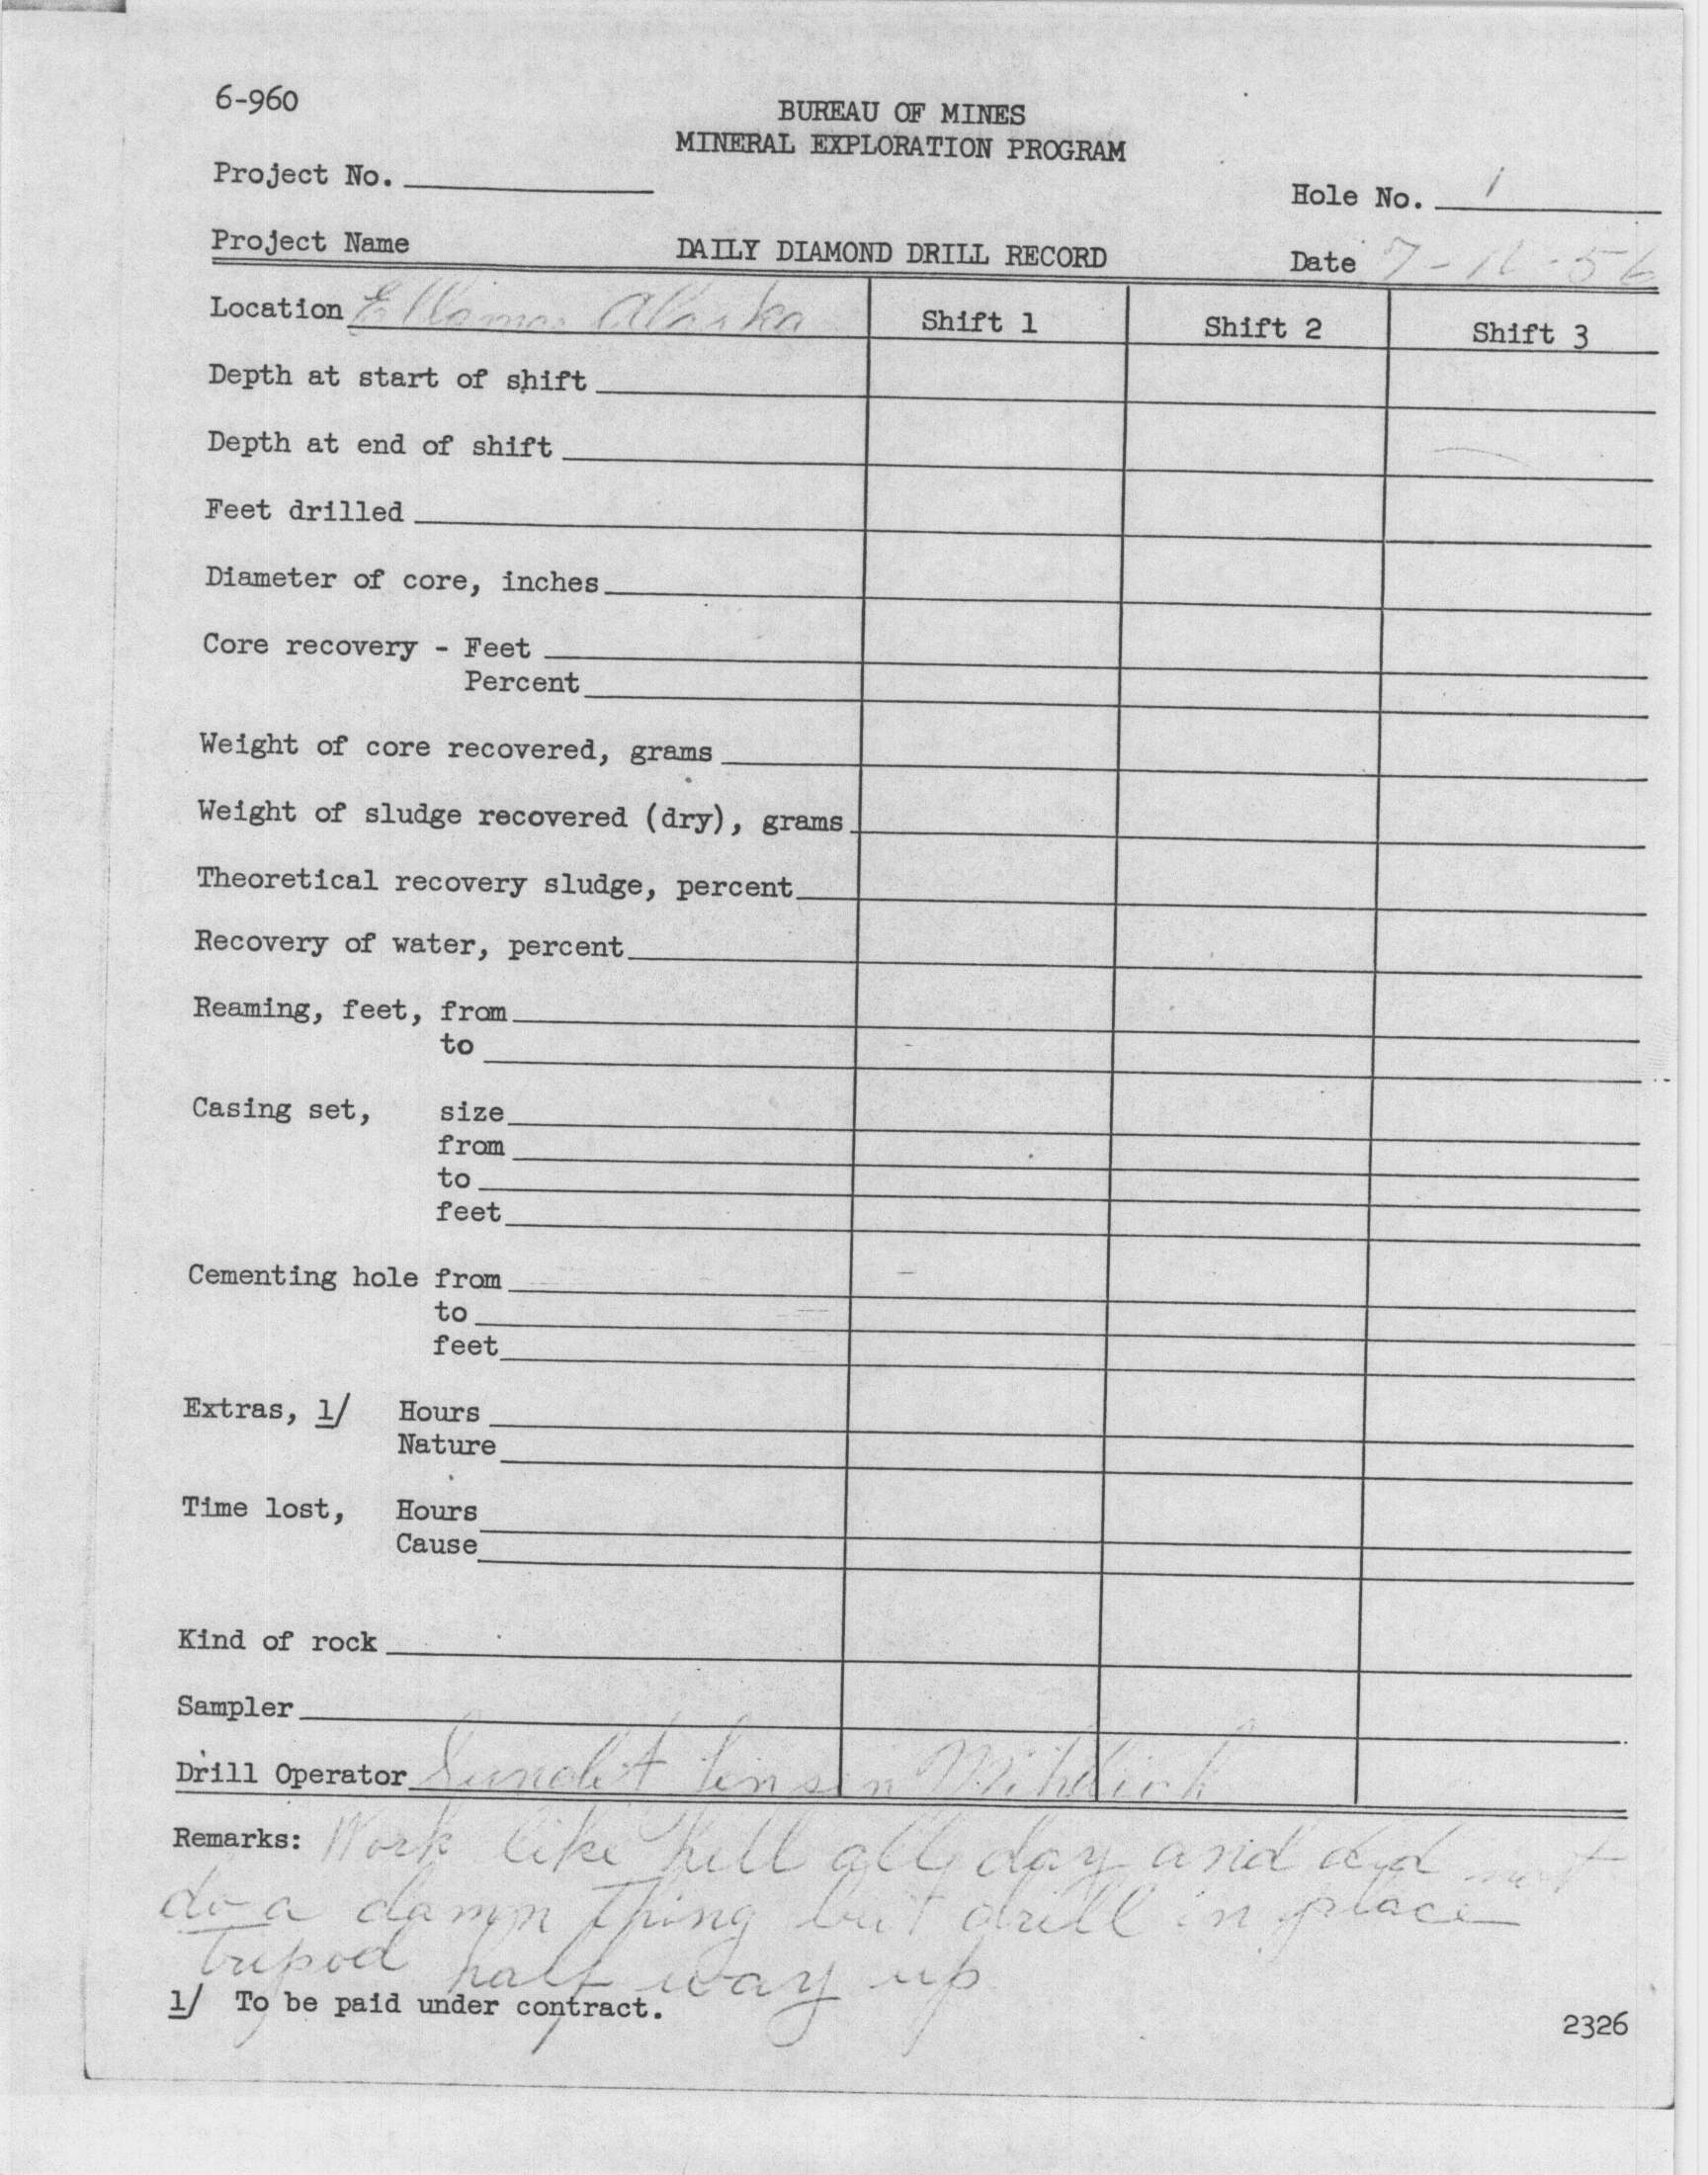 6-960
BUREAU OF MINES
MINERAL EXPLORATION PROGRAM
Project No.
Hole No. 1
Project Name DAILY DIAMOND DRILL RECORD Date 7- -56
Location Ellamar Alaska Shift 1 Shift 2 Shift 3
Depth at start of shift
Depth at end of shift
Feet drilled
Diameter of core, inches
Core recovery - Feet
Percent
Weight of core recovered, grams
Weight of sludge recovered (dry), grams
Theoretical recovery sludge, percent
Recovery of water, percent
Reaming, feet, from
to
Casing set, size
from
to
feet
Cementing hole from
to
feet
Extras, 1/ Hours
Nature
Time lost, Hours
Cause
Kind of rock
Sampler
Drill Operator
Remarks: Work like hell all day and did not
do a damn thing but drill in place
Tripod half way up
1/ To be paid under contract.
2326